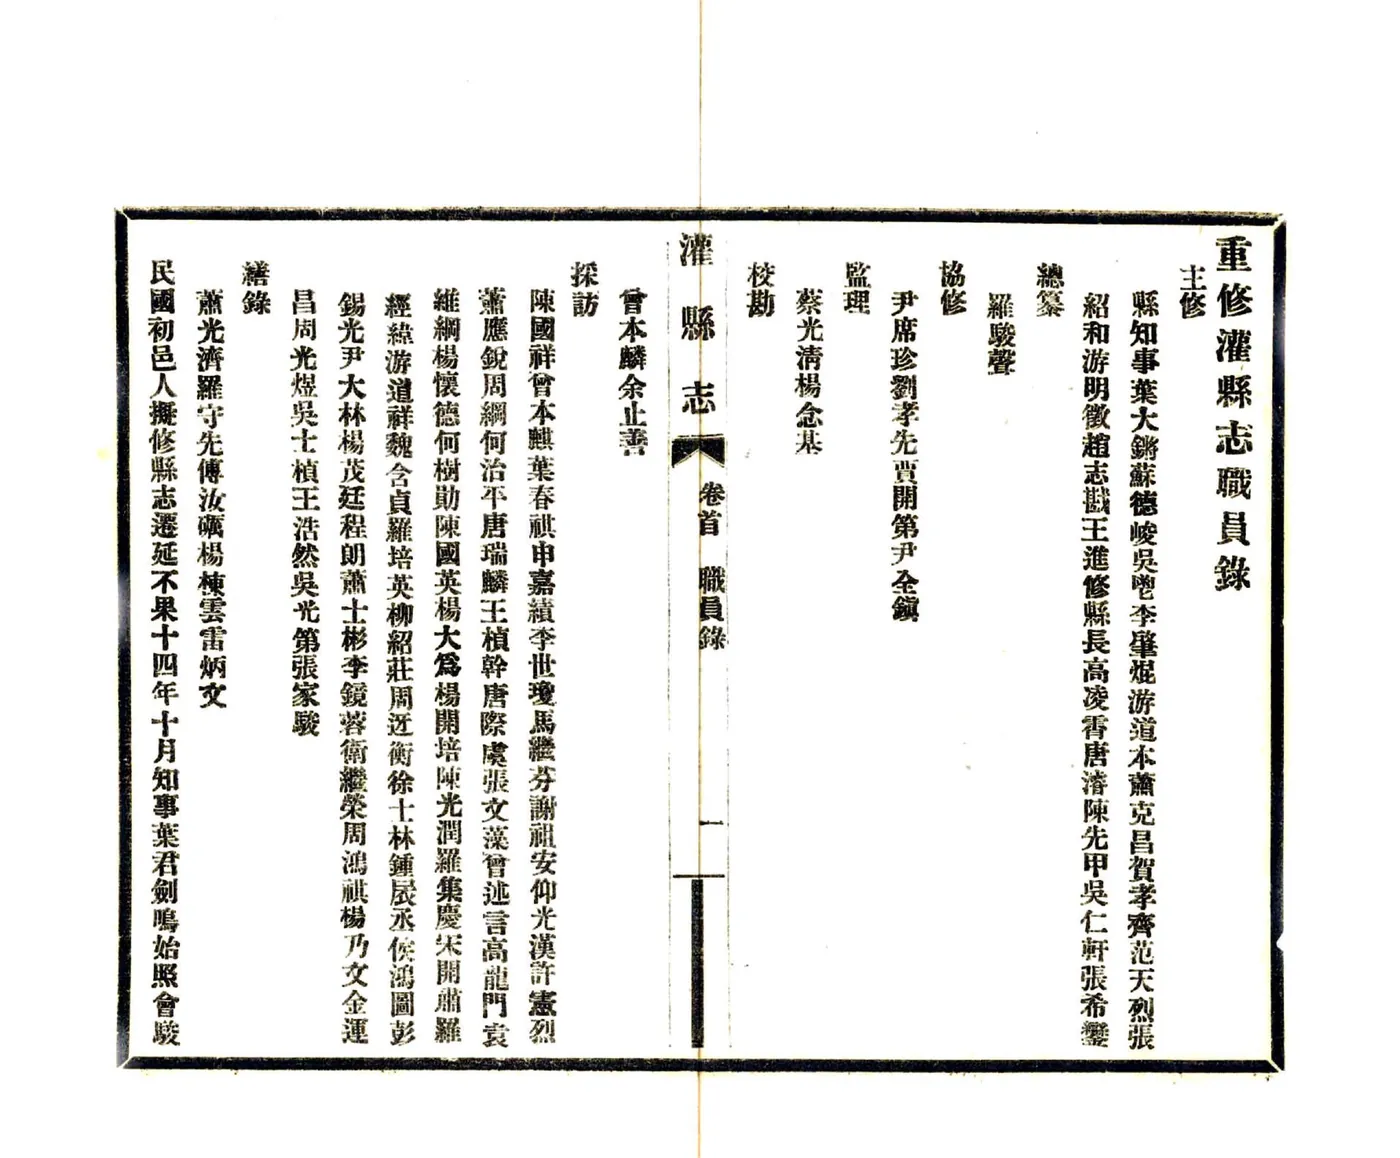 重修灌縣志職員錄
主修
縣知事葉大鏘蘇德峻吳鬯李肇焜游道本蕭克昌賀孝齊范天烈張
紹和游明徵趙志戡王進修縣長高凌霄唐濬陳先甲吳仁軒張希鑾
總纂
羅駿聲
協修
尹席珍劉孝先賈開第尹全鎭
監理
蔡光淸楊念基
校勘
灌縣志
卷首 職員錄
一
曾本麟余止善
採訪
陳國祥曾本麒葉春祺申嘉績李世瓊馬繼芬謝祖安仰光漢許憲烈
蕭應銳周綱何治平唐瑞麟王楨幹唐際虞張文藻曾述言高龍門袁
維綱楊懷德何樹勛陳國英楊大爲楊開培陳光潤羅集慶宋開肅羅
經緯游道祥魏含貞羅培英柳紹莊周迓衡徐士林鍾扆丞侯鴻圖彭
錫光尹大林楊茂廷程朗蕭士彬李鏡蓉衛繼榮周鴻祺楊乃文金運
昌周光煜吳士楨王浩然吳光第張家駿
繕錄
蕭光濟羅守先傅汝礪楊棟雲雷炳文
民國初邑人擬修縣志遷延不果十四年十月知事葉君劍鳴始照會駿